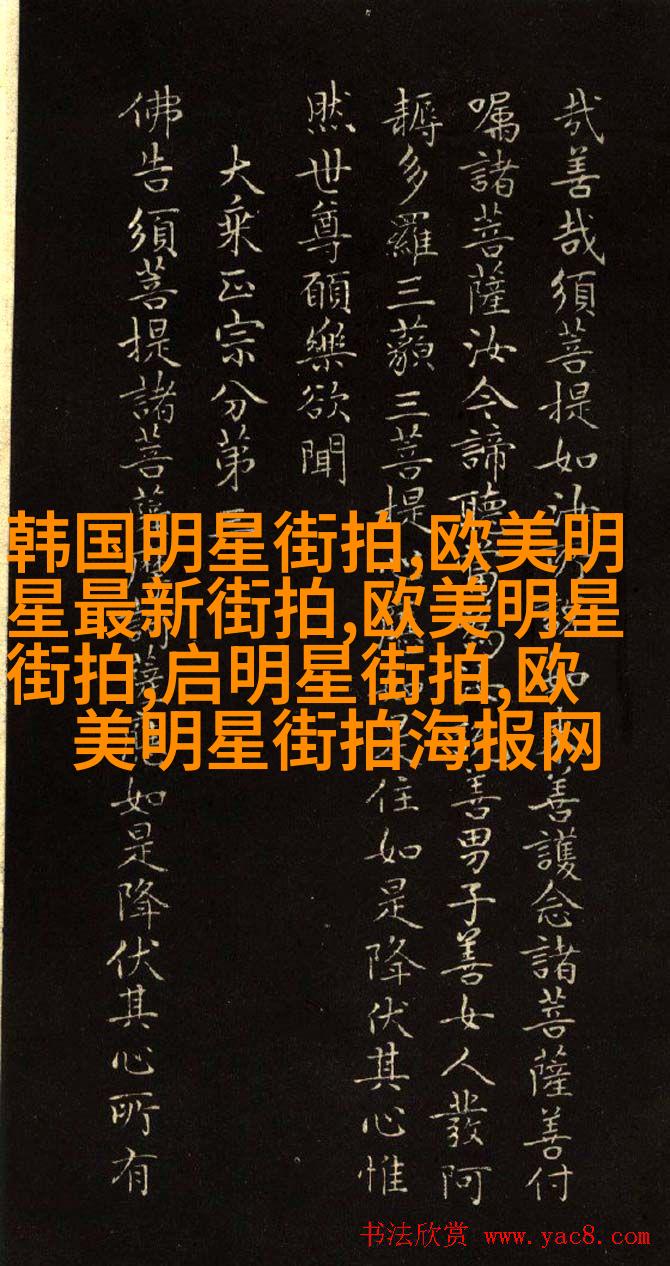 哉善哉須菩提如汝如善護念諸菩薩善付
囑諸菩薩汝今諦聽善男子善女人發阿
耨多羅三藐三菩提是住如是降伏其心惟
然世尊願樂欲聞
大乘正宗分第
佛告須菩提諸菩薩如是降伏其心所有
韩国明星街拍,欧美明
星最新街拍,欧美明星
街拍,启明星街拍,欧
美明星街拍海报网
书法欣赏 www.yac8.com